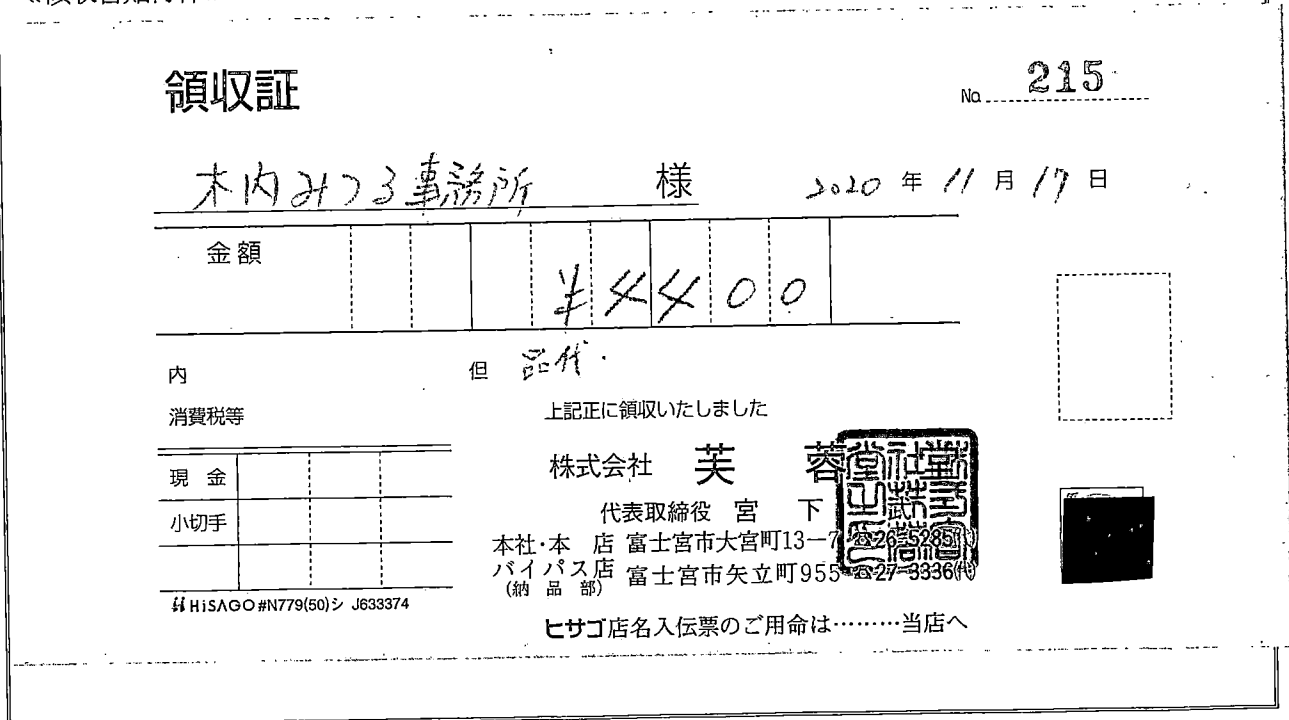 領収証
No 215
木内みつる事務所 様
2020 年 11 月 17 日
金額 ¥4400
内
但 品代.
消費税等
上記正に領収いたしました
現金
小切手
株式会社 芙蓉
代表取締役 宮下
本社・本店 富士宮市大宮町13-7 ☎26-5285(代)
バイパス店 富士宮市矢立町955 ☎27-3336(代)
(納品部)
HiSAGO #N779(50)シ J633374
ヒサゴ店名入伝票のご用命は………当店へ